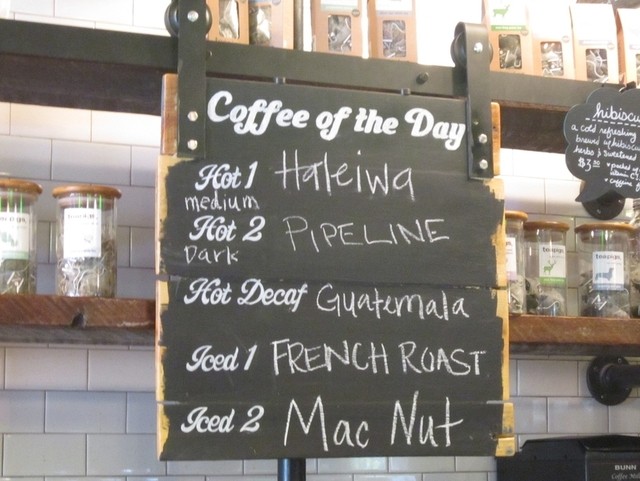 Coffee of the Day
Hot 1 Haleiwa
medium
Hot 2 PIPELINE
Dark
Hot Decaf Guatemala
Iced 1 FRENCH ROAST
Iced 2 Mac Nut
hibiscu
a cold refreshing
brew of hibiscu
herbs & sweetened
$3.50
BUNN